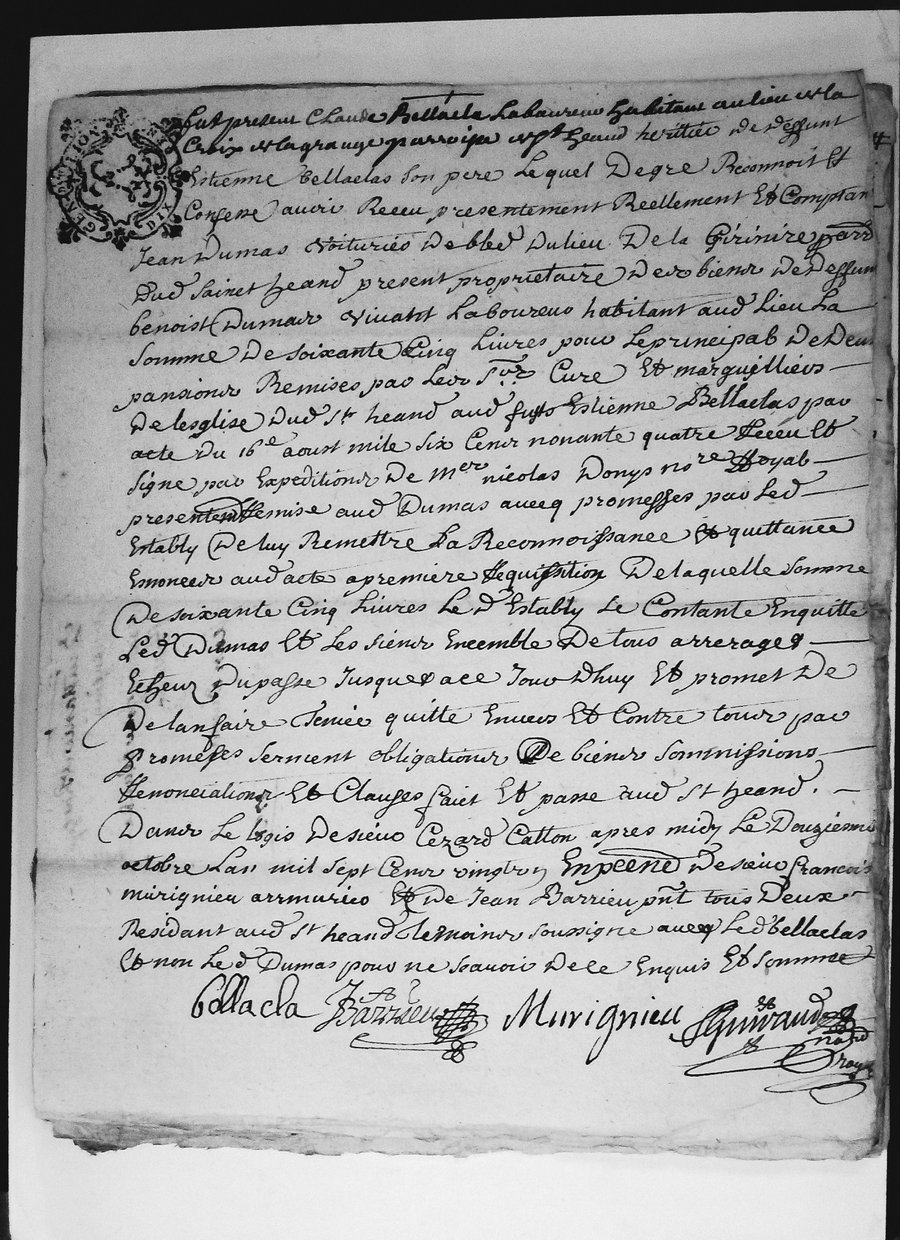 fut present Claude Bellacla Laboureur habitant au lieu de la
Croix de la grange parroisse de st heand heritier de deffunt
Estienne bellaclas son pere Lequel Degre Reconnoit Et
Confesse avoir Receu presentement Reellement Et Comptan
Jean Dumas Voituries De bled Du lieu De la parr
Dud Sainct heand present proprietaire Des biens De Deffun
benoist Dumas vivant Laboureur habitant aud Lieu La
Somme De soixante Cinq Livres pour Le principal De Deux
pansions Remises par Les Srs Cure Et marguilliers
De lesglise Dud st heand aud Estienne Bellaclas par
acte du 16e aoust mile six Cens nonante quatre Receu Et
signe par Expeditions De Mer nicolas Donys nore Royal
presentem Remise aud Dumas avecq promesses par Led
Estably De luy Remettre La Reconnoissance Et quittance
Enoncees aud acte a premiere Requisition De laquelle somme
De soixante Cinq Livres Le d Estably se Contante Enquitte
Led Dumas Et Les siens Ensemble De tous arrerages
Echeuz Du passe Jusques a ce Jour Dhuy Et promet De
De lanfaire tenir quitte Envers Et Contre tous par
promesses serment obligations De biens sommissions
Renonciations Et Clauses faict Et passe aud st heand .
Dans Le logis De sieur Cezard Catton apres midy Le Douzieme
octobre Lan mil sept Cens vingt En pcence De sieur francois
murignieu armurier Et De Jean Barrieu pnt tous Deux
Residant aud st heand Temoins soussigne avecq Led bellaclas
Et non Led Dumas pour ne scavoir De ce Enquis Et somme
bellacla JA Barrieu Murignieu Guiraud
nore
royal